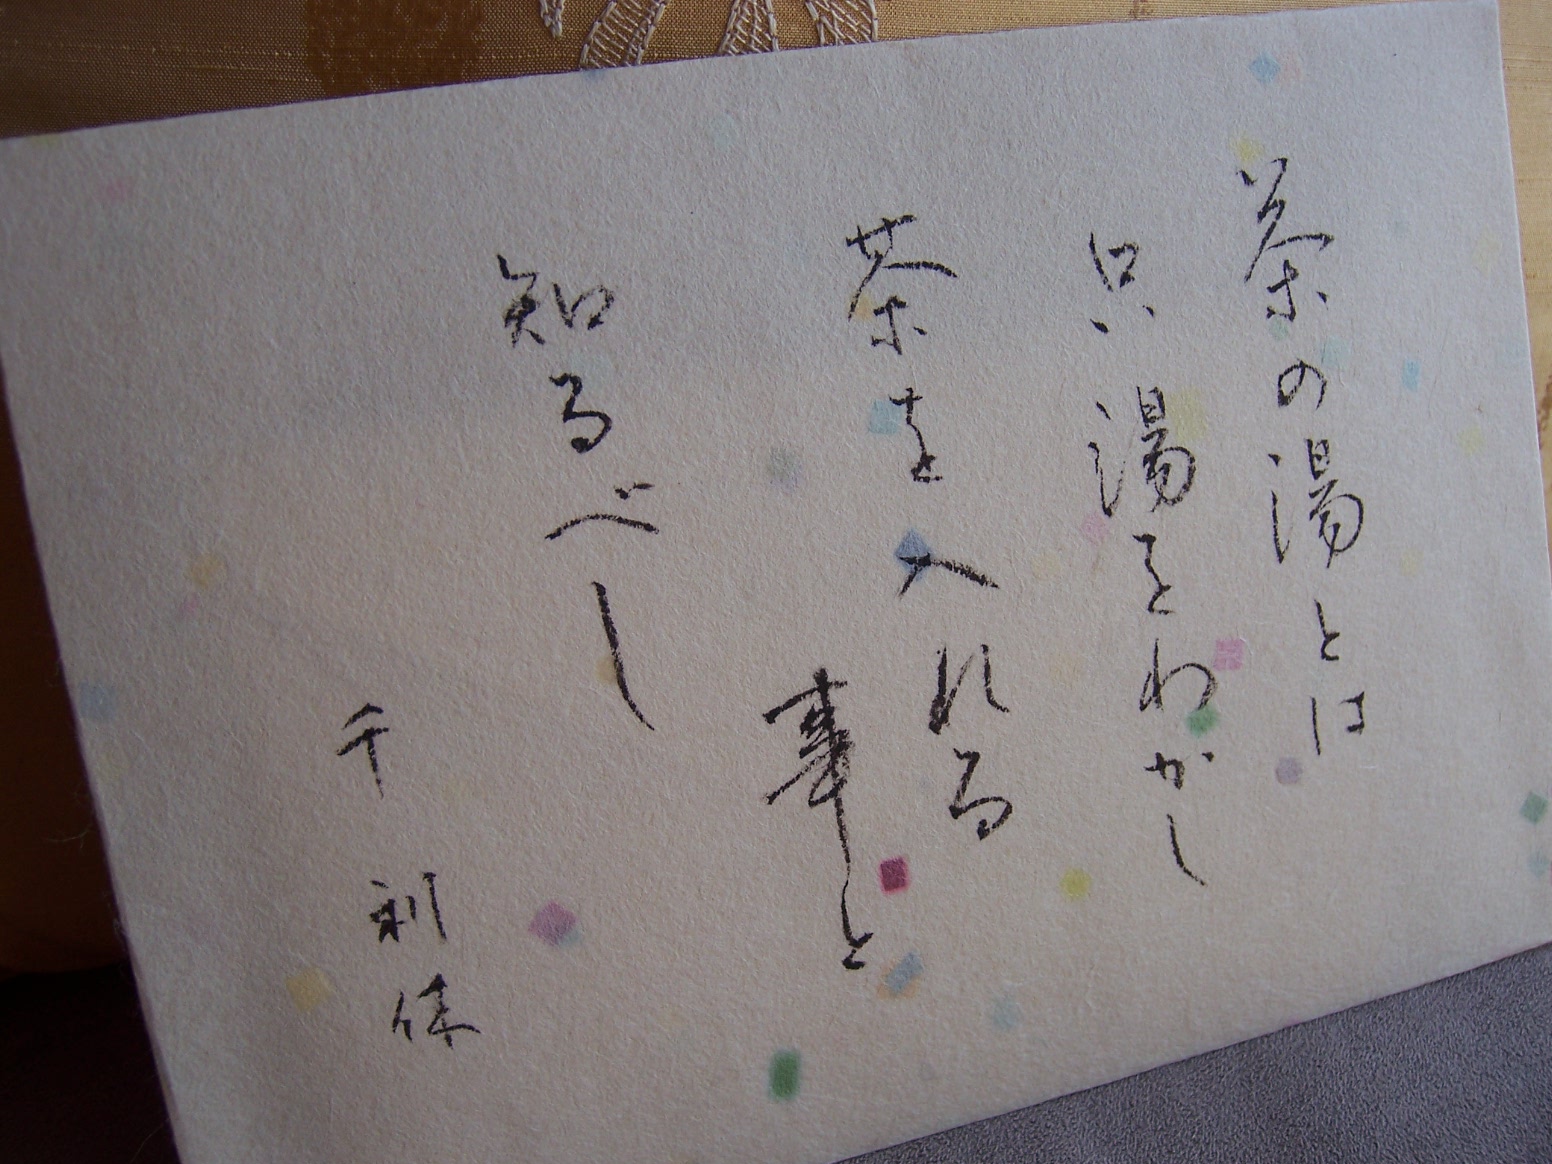 茶の湯とは
只湯をわかし
茶を入れる
事と
知るべし
千利休